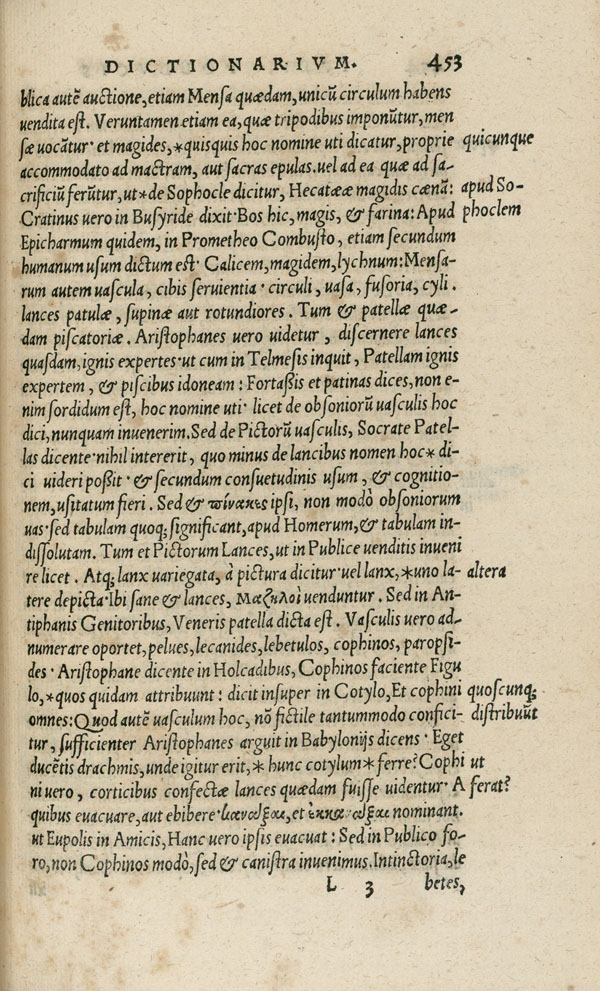 DICTIONARIVM. 453
blica autē auctione, etiam Mensa quædam, unicū circulum habens
uendita est. Veruntamen etiam ea, quæ tripodibus imponūtur, men
sæ uocātur· et magides, *quisquis hoc nomine uti dicatur, proprie quicunque
accommodato ad mactram, aut sacras epulas. uel ad ea quæ ad sa-
crificiū ferūtur, ut* de Sophocle dicitur, Hecatææ magidis cænā: apud So-
Cratinus uero in Busyride dixit· Bos hic, magis, & farina: Apud phoclem
Epicharmum quidem, in Prometheo Combusto, etiam secundum
humanum usum dictum est· Calicem, magidem, lychnum: Mensa-
rum autem uascula, cibis seruientia· circuli, uasa, fusoria, cyli.
lances patulæ, supinæ aut rotundiores. Tum & patellæ quæ-
dam piscatoriæ. Aristophanes uero uidetur, discernere lances
quasdam, ignis expertes· ut cum in Telmesis inquit, Patellam ignis
expertem, & piscibus idoneam: Fortaßis et patinas dices, non e-
nim sordidum est, hoc nomine uti· licet de obsoniorū uasculis hoc
dici, nunquam inuenerim. Sed de Pictorū uasculis, Socrate Patel-
las dicente· nihil intererit, quo minus de lancibus nomen hoc* di-
ci uideri poßit· & secundum consuetudinis usum, & cognitio-
nem, usitatum fieri. Sed & πίνακες ipsi, non modò obsoniorum
uas· sed tabulam quoq; significant, apud Homerum, & tabulam in-
dissolutam. Tum et Pictorum Lances, ut in Publice uenditis inueni
re licet. Atq; lanx uariegata, à pictura dicitur· uel lanx, *uno la- altera
tere depicta· Ibi sane & lances, Μαζηλοὶ uenduntur. Sed in An-
tiphanis Genitoribus, Veneris patella dicta est. Vasculis uero ad-
numerare oportet, pelues, lecanides, lebetulos, cophinos, paropsi-
des· Aristophane dicente in Holcadibus, Cophinos faciente Figu
lo, *quos quidam attribuunt: dicit insuper in Cotylo, Et cophini quoscunq;
omnes: Quod autē uasculum hoc, nō fictile tantummodo confici- distribuūt
tur, sufficienter Aristophanes arguit in Babylonijs dicens· Eget
ducētis drachmis, unde igitur erit, * hunc cotylum* ferre? Cophi ut
ni uero, corticibus confectæ lances quædam fuisse uidentur· A ferat?
quibus euacuare, aut ebibere· et nominant.
ut Eupolis in Amicis, Hanc uero ipsis euacuat: Sed in Publico fo-
ro, non Cophinos modò, sed & canistra inuenimus. Intinctoria, le
L 3 betes,